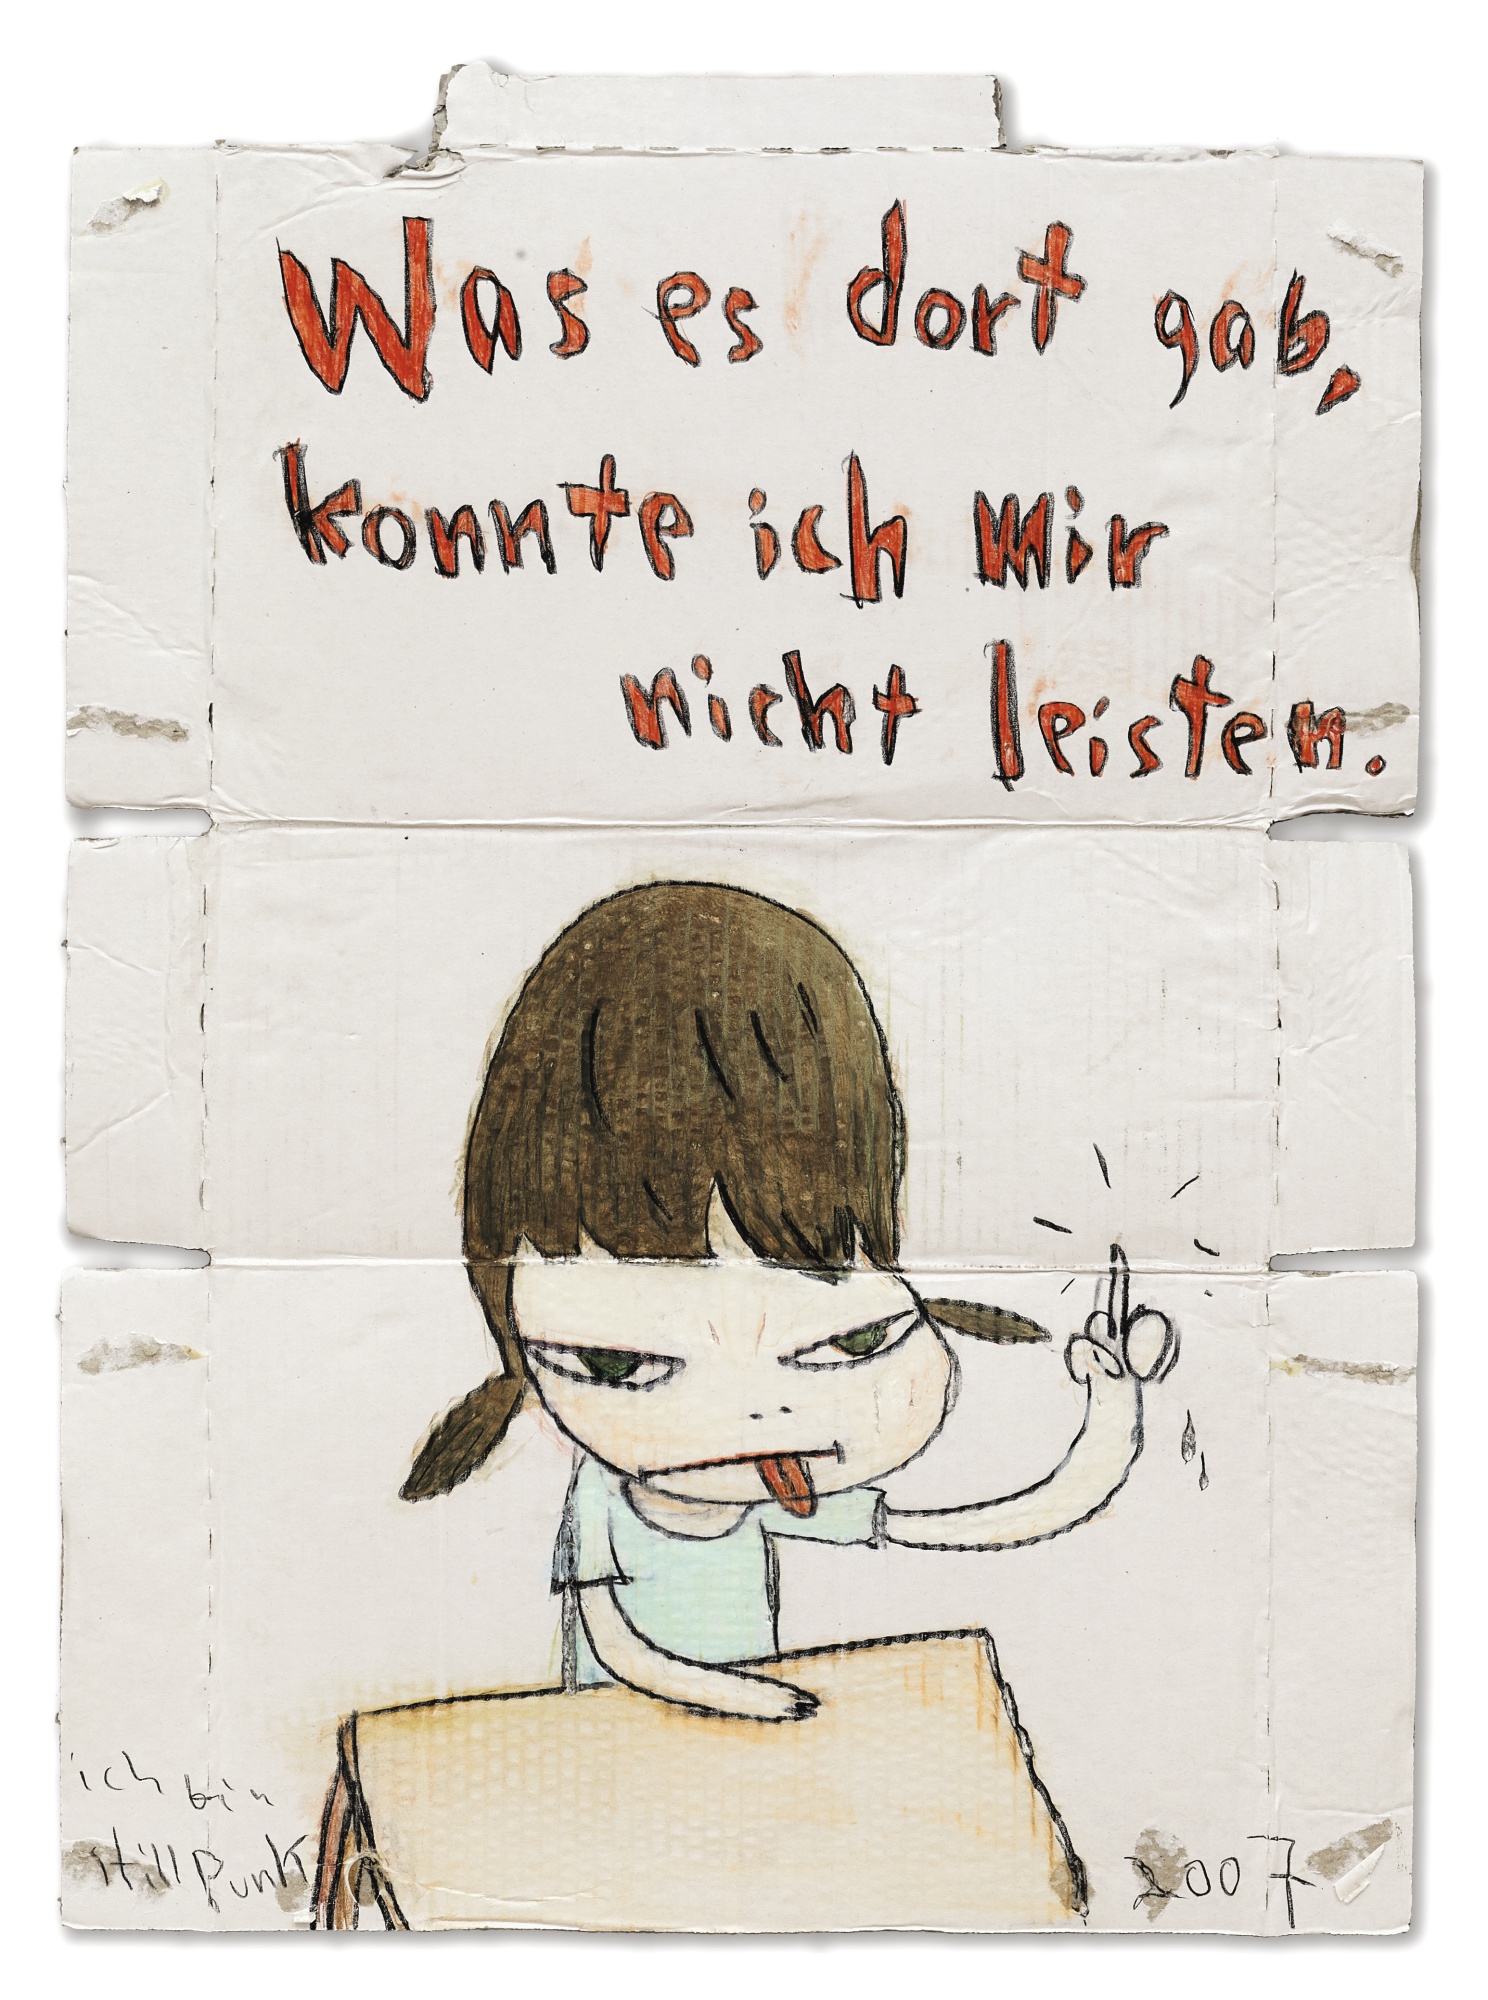 Was es dort gab,
konnte ich mir
nicht leisten.
ich bin
still Punk
2007